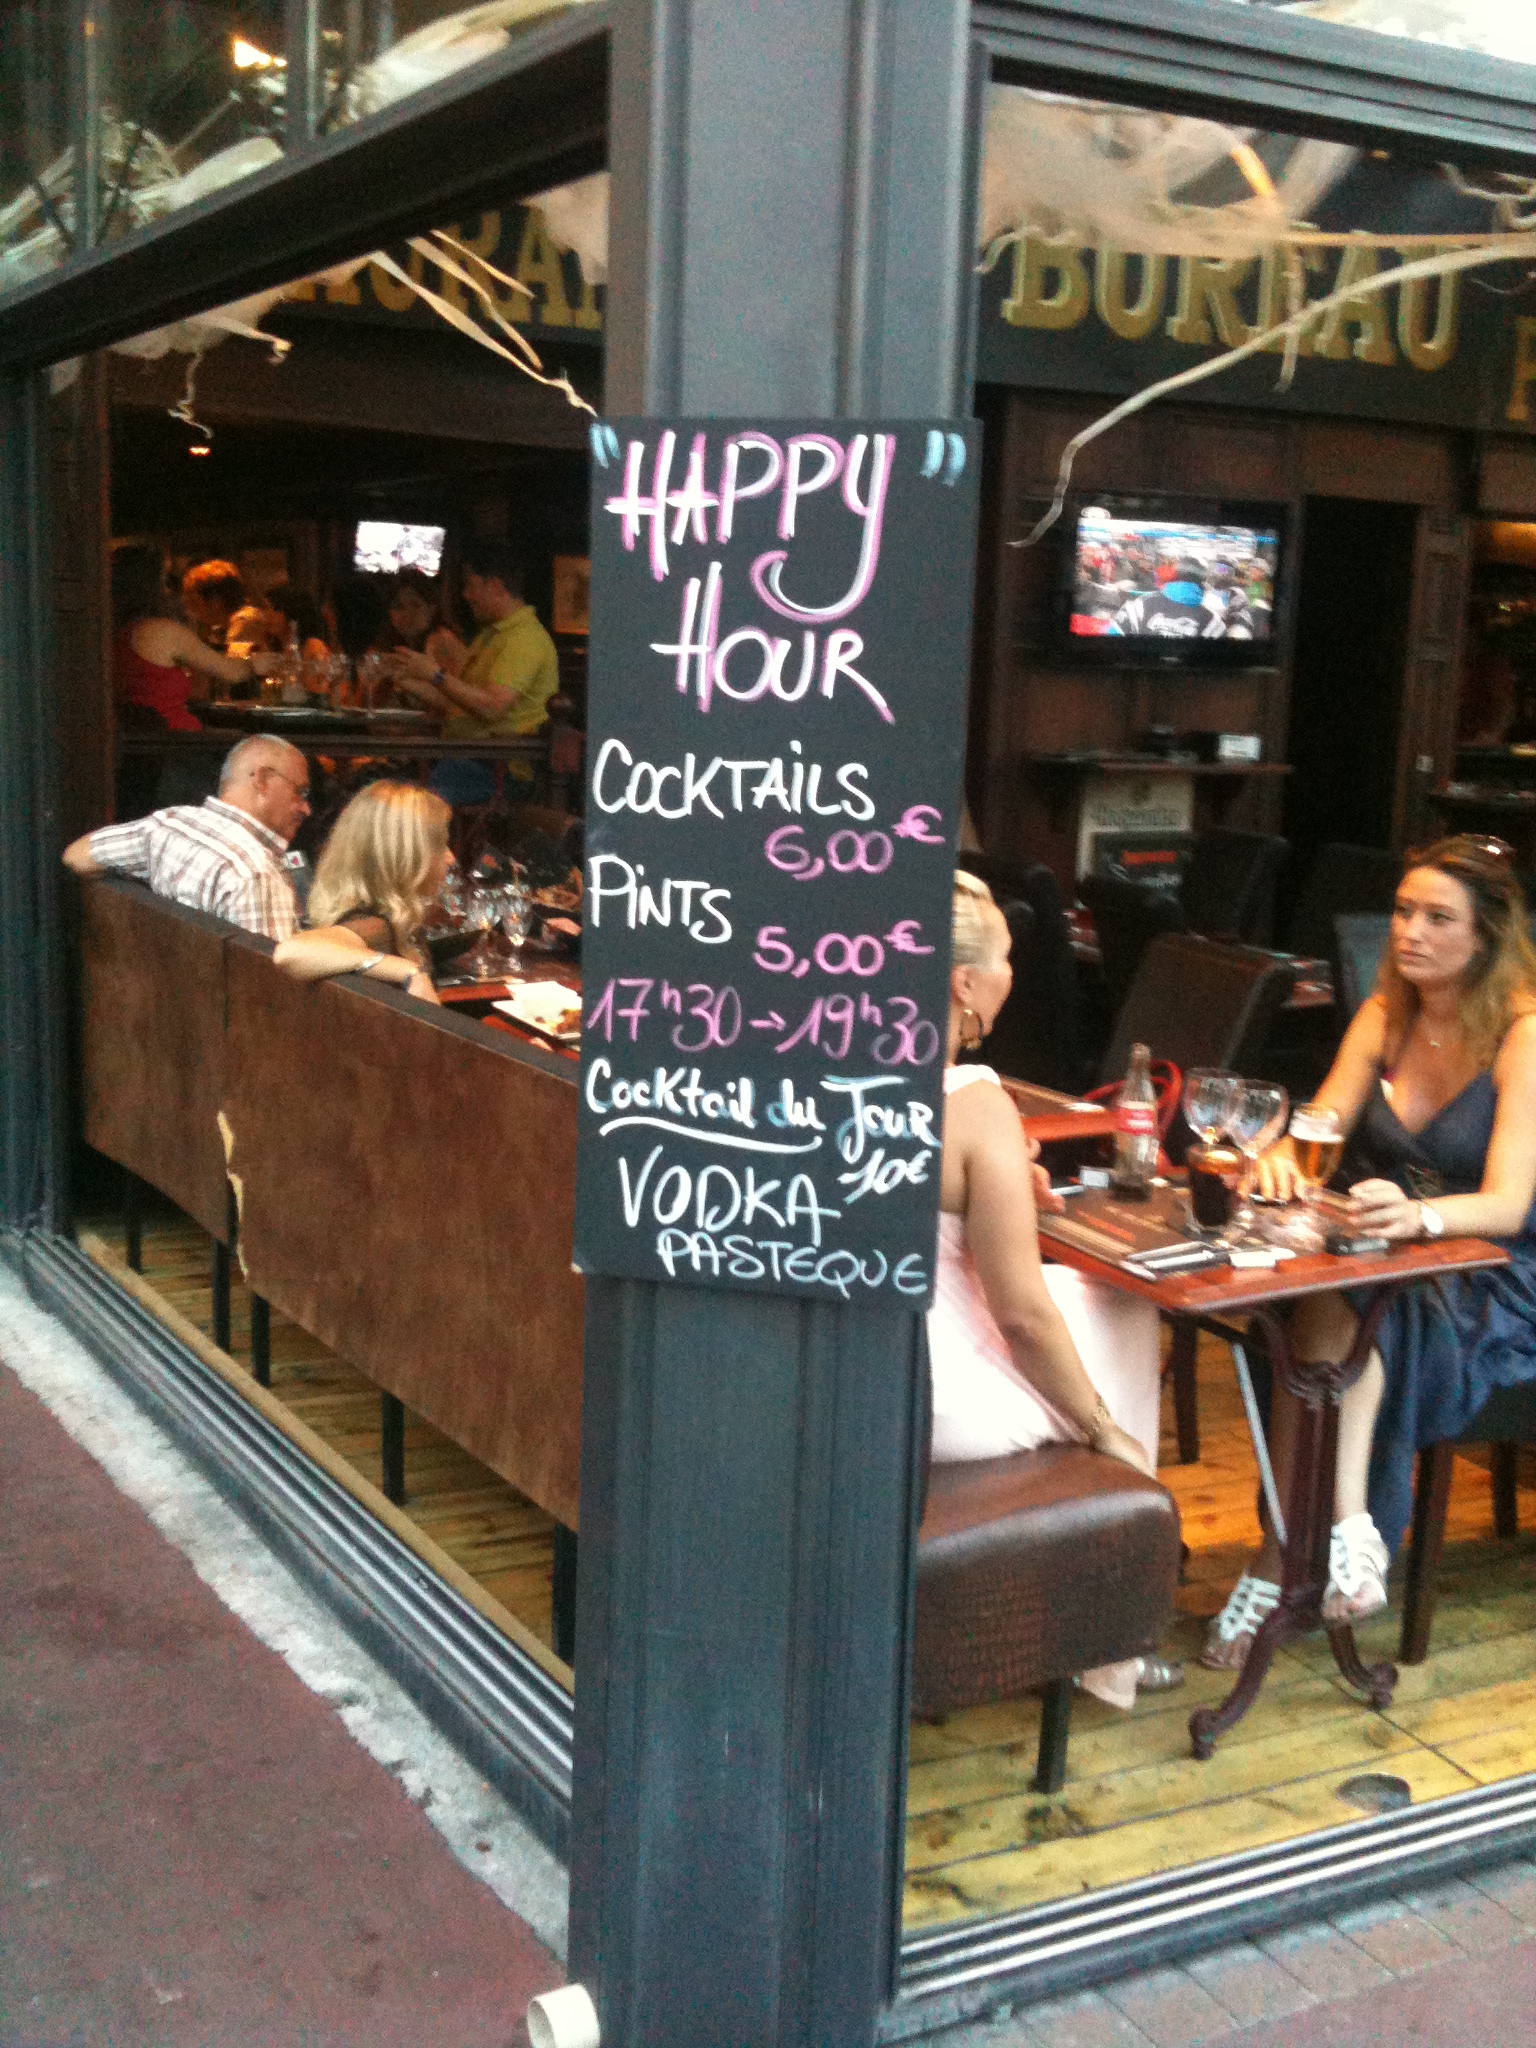 BUREAU
"HAPPY"
HOUR
COCKTAILS
6,00€
PINTS
5,00€
17h30→19h30
Cocktail du Jour
10€
VODKA
PASTEQUE